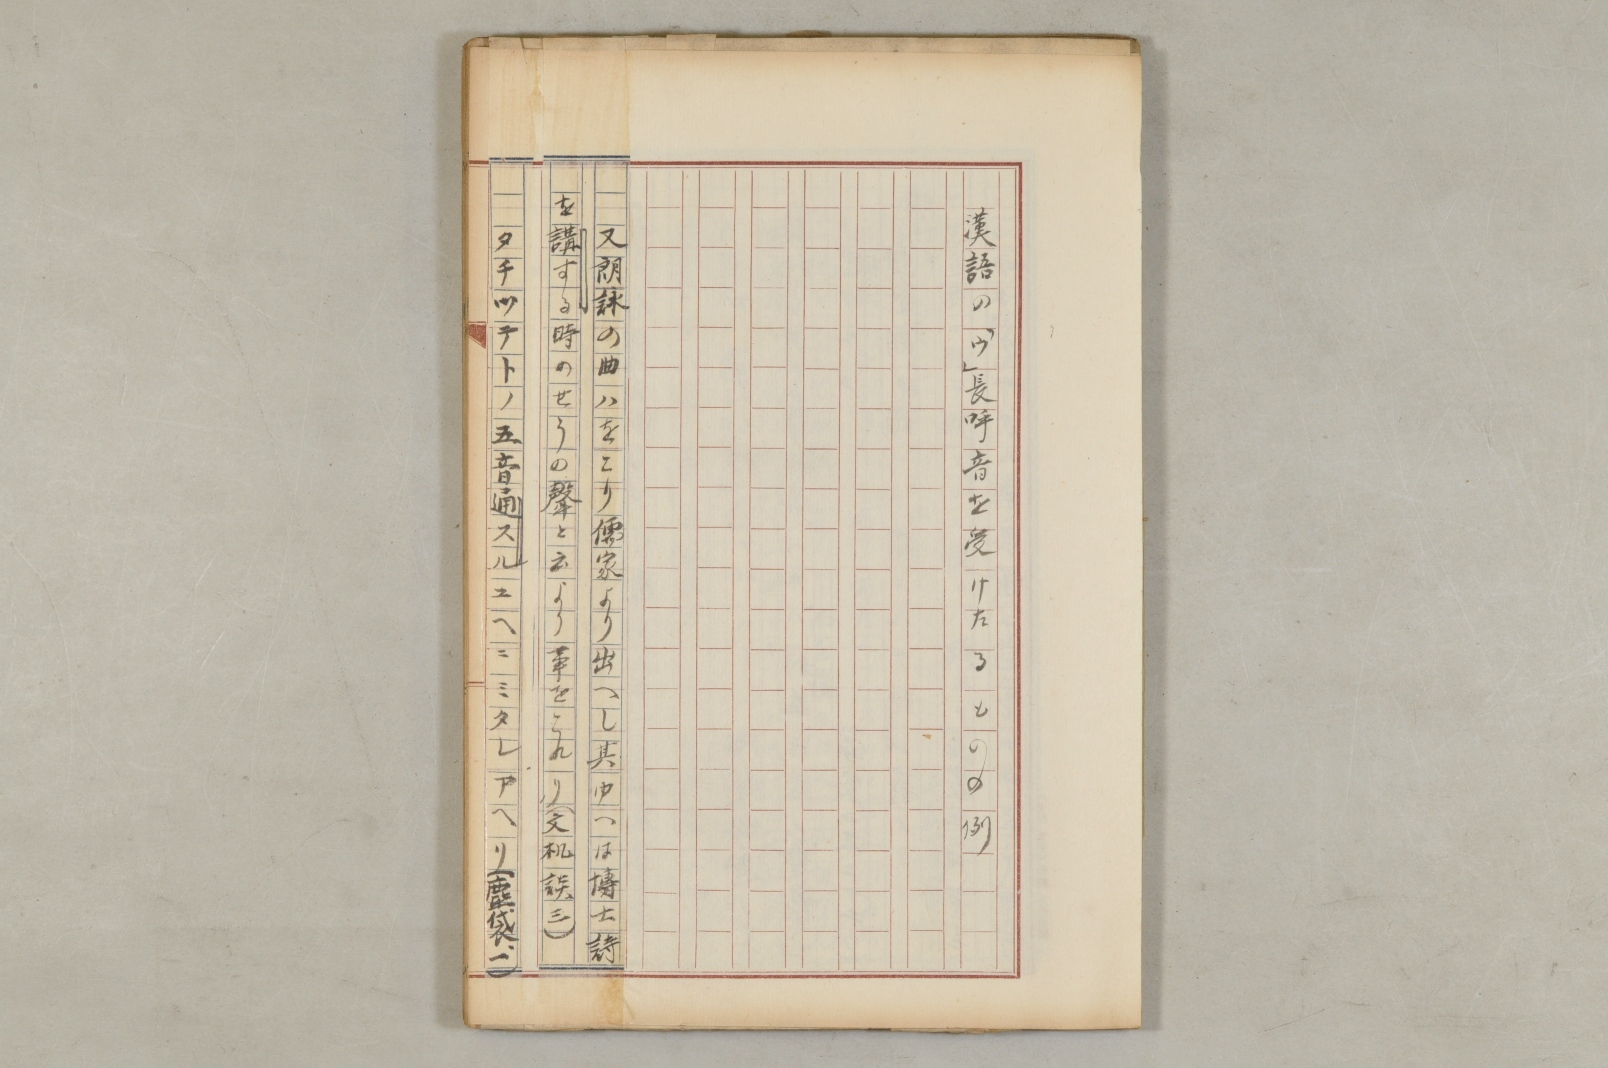 漢語の「ウ」長呼音を受けたるものの例
又朗詠の曲ハをこり儒家より出へし其ゆへは博士詩
を講する時のせうの聲と云より事をこれり(文机談三)
タチツテトノ五音通スルユヘニミタレアヘリ(塵袋、一)